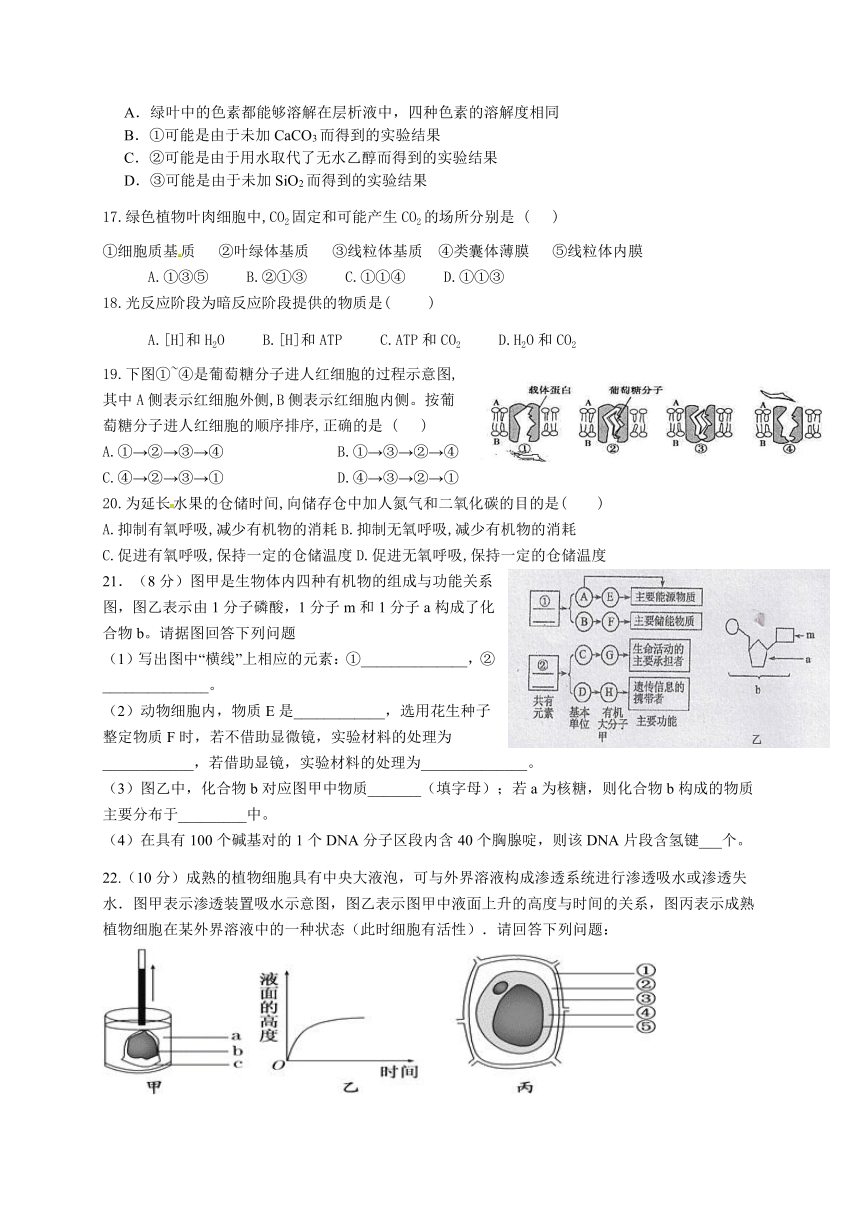 A．绿叶中的色素都能够溶解在层析液中，四种色素的溶解度相同
B．①可能是由于未加 CaCO3 而得到的实验结果
C．②可能是由于用水取代了无水乙醇而得到的实验结果
D．③可能是由于未加 SiO2 而得到的实验结果
17.绿色植物叶肉细胞中,CO2固定和可能产生CO2的场所分别是 ( )
①细胞质基质 ②叶绿体基质 ③线粒体基质 ④类囊体薄膜 ⑤线粒体内膜
A.①③⑤ B.②①③ C.①①④ D.①①③
18.光反应阶段为暗反应阶段提供的物质是( )
A.[H]和H2O B.[H]和ATP C.ATP和CO2 D.H2O和CO2
19.下图①~④是葡萄糖分子进人红细胞的过程示意图,
其中A侧表示红细胞外侧,B侧表示红细胞内侧。按葡
萄糖分子进人红细胞的顺序排序,正确的是 ( )
A.①→②→③→④ B.①→③→②→④
C.④→②→③→① D.④→③→②→①
载体蛋白 葡萄糖分子
A A A A
B B B B
① ② ③ ④
20.为延长水果的仓储时间,向储存仓中加人氮气和二氧化碳的目的是( )
A.抑制有氧呼吸,减少有机物的消耗 B.抑制无氧呼吸,减少有机物的消耗
C.促进有氧呼吸,保持一定的仓储温度 D.促进无氧呼吸,保持一定的仓储温度
21．（8分）图甲是生物体内四种有机物的组成与功能关系
图，图乙表示由1分子磷酸，1分子m和1分子a构成了化
合物b。请据图回答下列问题
（1）写出图中“横线”上相应的元素：①________________,②
________________。
（2）动物细胞内，物质E是_____________，选用花生种子
整定物质F时，若不借助显微镜，实验材料的处理为
_____________，若借助显镜，实验材料的处理为________________。
① A E 主要能源物质
B F 主要储能物质
② C G 生命活动的主要承担者
D H 遗传信息的携带者
共有元素 基本单位 有机大分子 主要功能
甲
m
a
b
乙
（3）图乙中，化合物b对应图甲中物质________（填字母）；若a为核糖，则化合物b构成的物质
主要分布于__________中。
（4）在具有100个碱基对的1个DNA分子区段内含40个胸腺啶，则该DNA片段含氢键___个。
22.（10分）成熟的植物细胞具有中央大液泡，可与外界溶液构成渗透系统进行渗透吸水或渗透失
水．图甲表示渗透装置吸水示意图，图乙表示图甲中液面上升的高度与时间的关系，图丙表示成熟
植物细胞在某外界溶液中的一种状态（此时细胞有活性）．请回答下列问题：
a
b
c
甲
液面的高度
O 时间
乙
①
②
③
④
⑤
丙